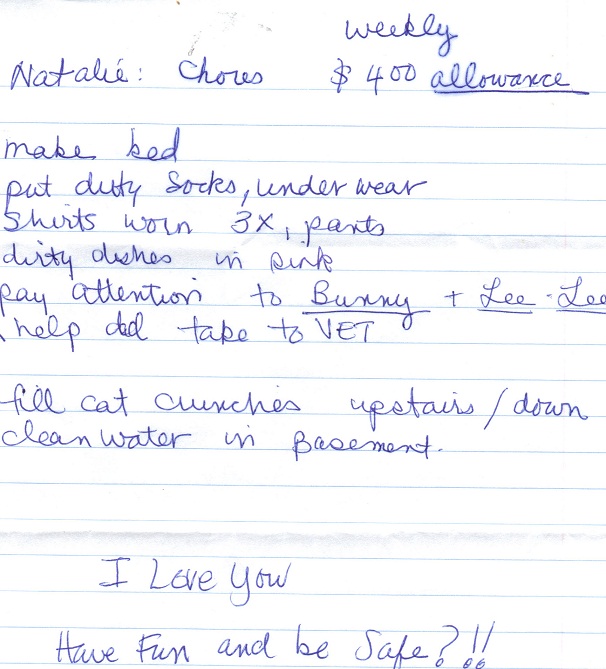 weekly
Natalie: Chores $400 allowance
make bed
put duty Socks, underwear
Shirts worn 3X, pants
dirty dishes in sink
pay attention to Bunny + Lee-Lee
help dad take to VET
fill cat crunches upstairs / down
clean water in Basement.
I Love You
Have Fun and be Safe?!!